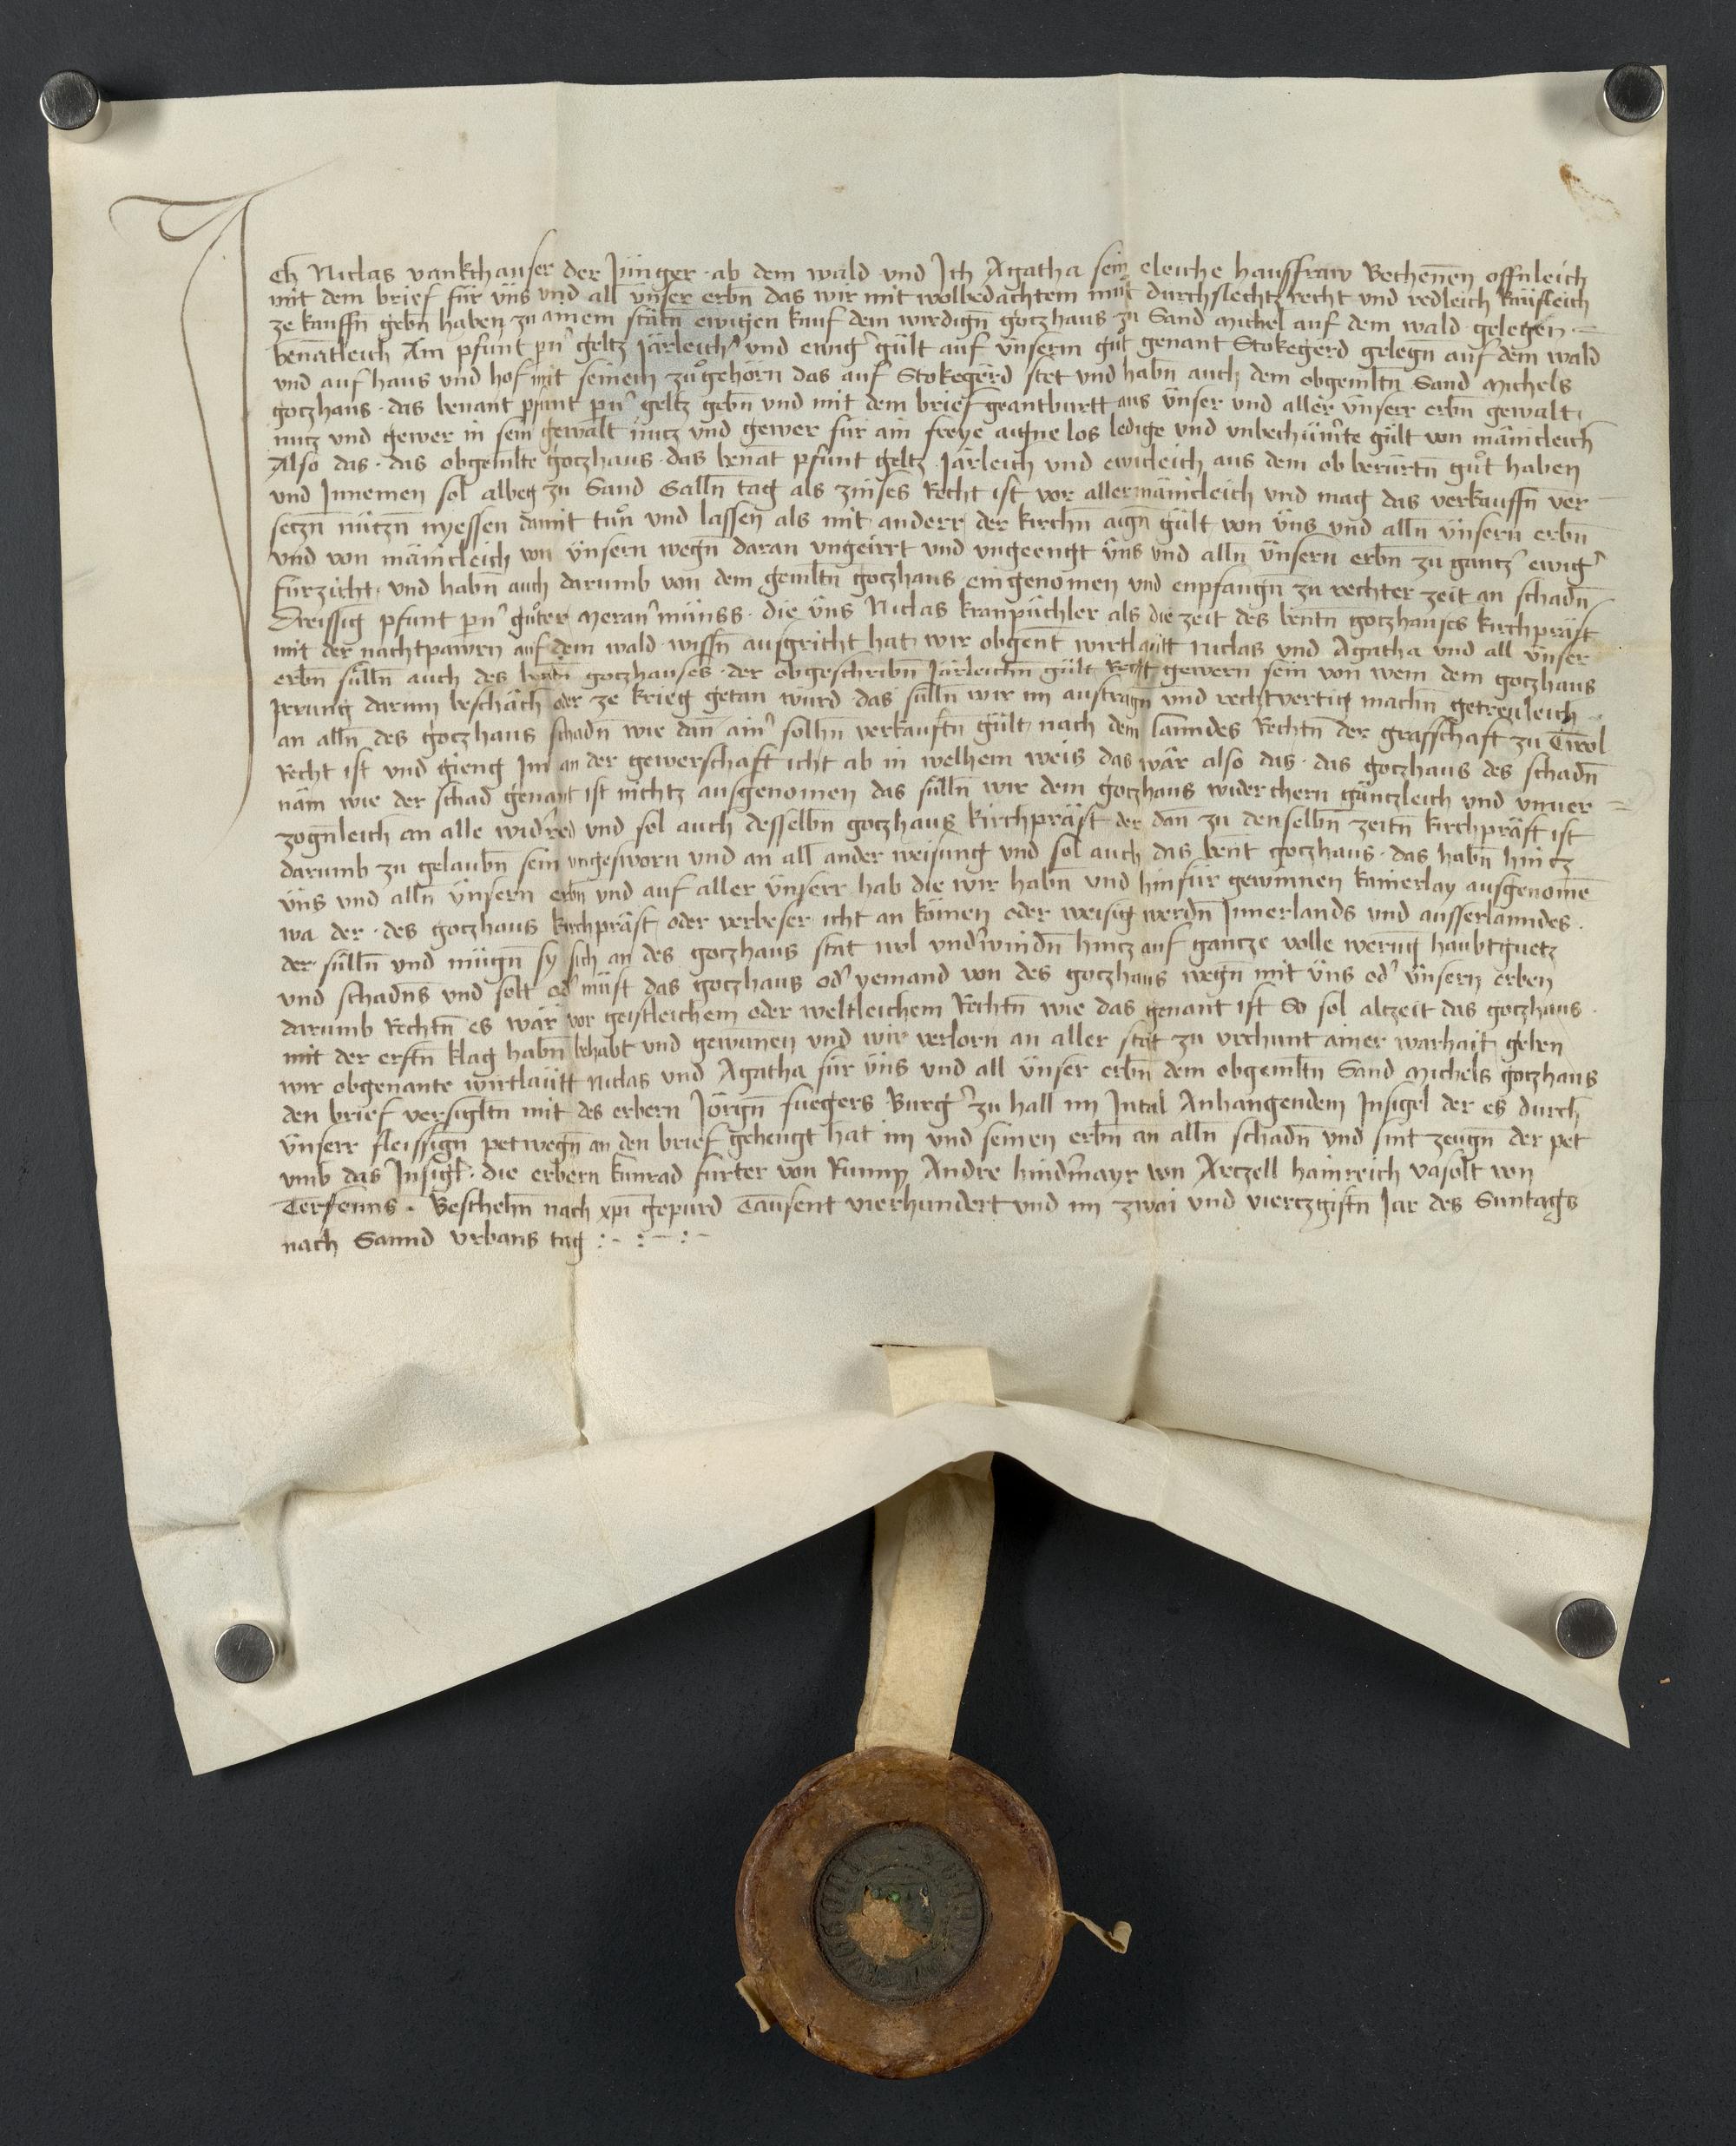 Ich Niclas vankchauser der Jünger ab dem wald und Ich Agatha sein eleiche hausfraw Bechenn̄en offnleich
mit dem brief für üns und all ünser erbn̄ das wir mit wolbedachtem müt durchslechtz recht und redleich kaufleich
ze kauffn̄ gebn̄ haben zu ainem stätn̄ ewigen kauf dem wirdign̄ goczhaus zu Sand Michel auf dem wald gelegen
benātleich Ain pfunt pn̄ geltz Järleich und ewig gült auf ünserm güt genant Stokegerd gelegn̄ auf dem wald
und auf haus und hof mit seinem zugehörn das auf Stokegerd stet und habn̄ auch dem obgemltn̄ Sand Michels
goczhaus · das benant pfunt pn̄ geltz gebn̄ und mit dem brief geantburtt aus ünser und aller ünserr erbn̄ gewalt
nutz und gewer in sein gewalt nutz und gewer für ain freye aigne los ledige und unbechümerte gült von mänicleich
Also das · das obgemlte goczhaus · das benāt pfunt geltz Järleich und ewicleich aus dem ob berürtn̄ güt haben
und Innemen sol albeg zu Sand Galln̄ tag als zinses Recht ist vor allermänicleich und mag das verkauffn̄ ver
seczn̄ nützn̄ nyessen damit tun und lassen als mit anderr der kirchn̄ aign̄ gült von üns und alln̄ ünsern erbn̄
und von mänicleich von ünsern wegn̄ daran ungeirrt und ungeengt üns und alln̄ ünsern erbn̄ zu gantz ewig
fürzicht und habn̄ auch darumb von dem gemltn̄ goczhaus eingenomen und enpfangn̄ zu rechter zeit an schadn̄
Dreissig pfunt pn̄ güter Meran münss · die üns Niclas kranpüchler als die zeit des bentn̄ goczhauses kirchpräst
mit der nachtpawrn auf dem wald wissn̄ ausgricht hat wir obgent wirtläutt Niclas und Agatha und all ünser
erbn̄ sülln̄ auch des bentn̄ goczhauses · der obgeschribn̄ Järleichn̄ gült Recht gewern sein von wem dem goczhaus
Irrung darum beschäch oder ze krieg getan würd das sülln̄ wir im austragn̄ und rechtvertig machn̄ getreuleich
an alln̄ des goczhaus schadn̄ wie dan̄ ainr solhn̄ verkauftn̄ gült nach dem lanndes Rechtn̄ der grafschaft zu Tirol
Recht ist und gieng Im an der gewerschaft icht ab in welhem weis das wär also das · das goczhaus des schadn̄
näm wie der schad genant ist nichtz ausgenomen das sülln̄ wir dem goczhaus widerchern gäntzleich und unver
zogn̄leich an alle widred und sol auch desselbn̄ goczhaus kirchpräst der dan̄ zu denselbn̄ zeitn̄ kirchpräst ist
darumb zu gelaubn̄ sein ungesworn und an all ander weisung und sol auch das bent goczhaus · das habn̄ hincz
üns und alln̄ ünsern erbn̄ und auf aller ünserr hab die wir habn̄ und hinfür gewinnen kainerlay ausgenomē
wa der · des goczhaus kirchpräst oder verbeser icht an kömen oder weisig werdn̄ Innerlands und ausserlanndes ·
der sülln̄ und mügn̄ sy sich an des goczhaus stat wol underwindn̄ hincz auf gantze volle werūg haubtguetz
und schadn̄s und solt od müst das goczhaus od yemand von des goczhaus wegn̄ mit üns od ünsern erben
darumb Rechtn̄ es wär vor geistleichem oder weltleichem Rechtn̄ wie das genant ist So sol altzeit das goczhaus
mit der erstn̄ klag habn̄ behabt und gewunen und wir verlorn an aller stat zu urchunt ainer warhait geben
wir obgenante wirtläutt Niclas und Agatha für üns und all ünser erbn̄ dem obgemltn̄ Sand Michels goczhaus
den brief versigltn̄ mit des erbern Jörgn̄ fuegers Burg zu hall im Intal Anhangendem Insigel der es durch
ünserr fleissign̄ pet wegn̄ an den brief gehengt hat im und seinen erbn̄ an alln̄ schadn̄ und sint zeugn̄ der pet
umb das Insigl · die erbern kunrad furter von Rumm Andre hindmayr von Arczell hainreich vasolt von
Terfenns · Beschehn̄ nach xpi gepurd Tausent vierhundert und im zwai und vierczgistn̄ Jar des Suntags
nach Sannd Urbans tag